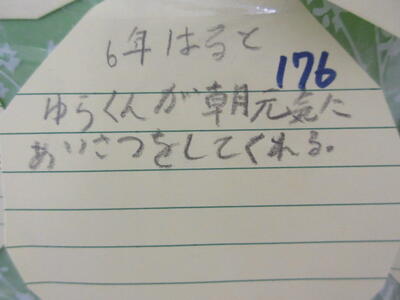 6年 はると
176
ゆらくんが朝元気に
あいさつをしてくれる。